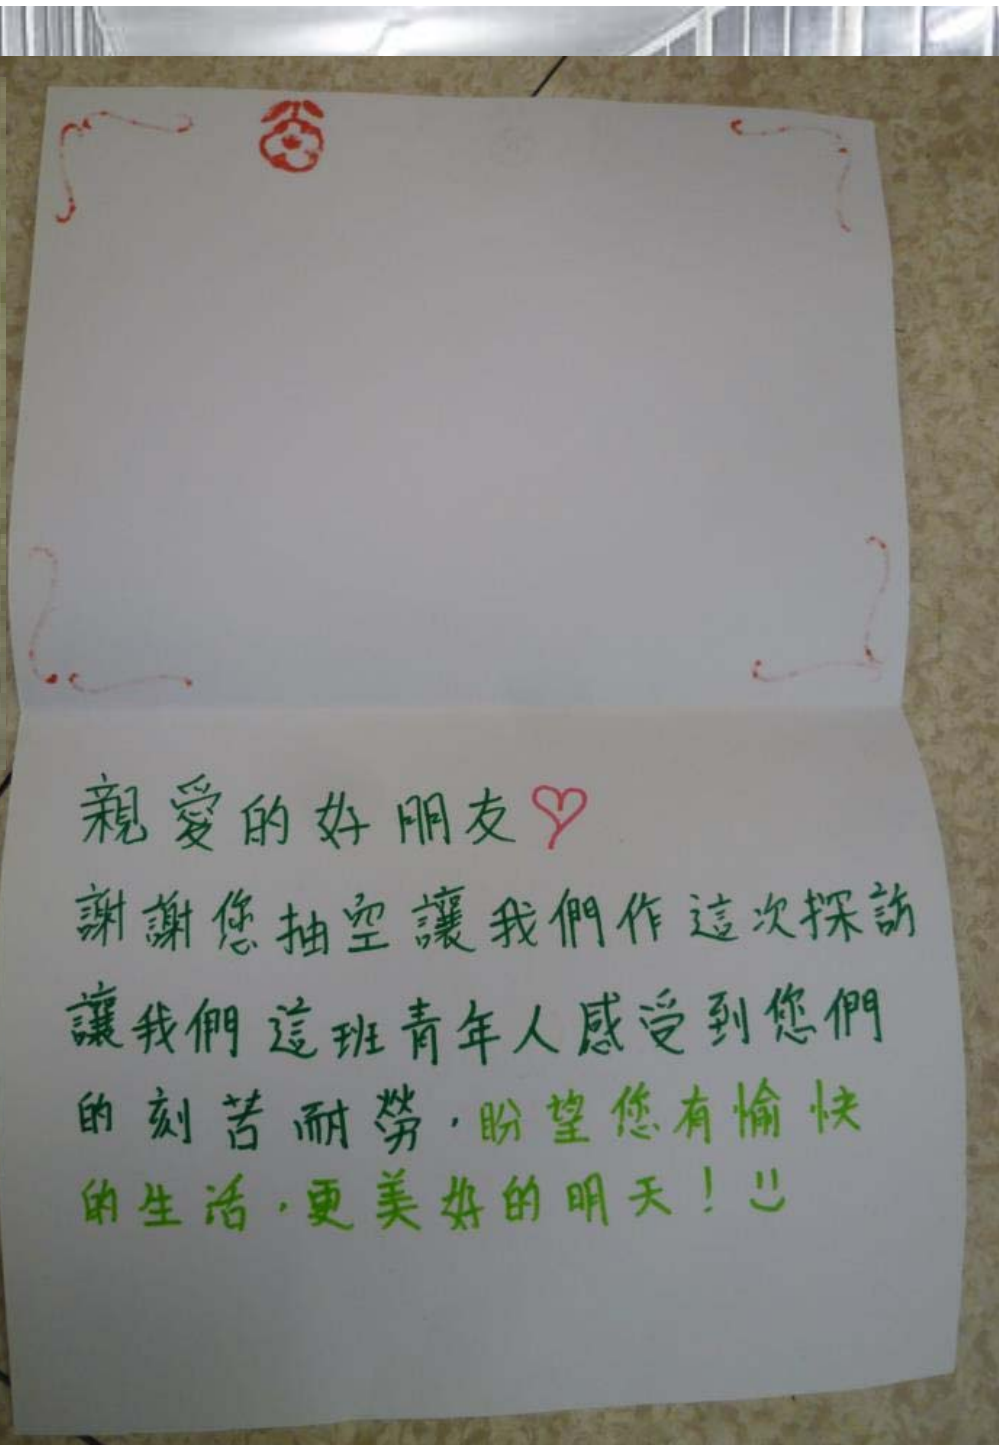 親愛的好朋友♡
謝謝您抽空讓我們作這次探訪
讓我們這班青年人感受到您們
的刻苦耐勞，盼望您有愉快
的生活，更美好的明天！